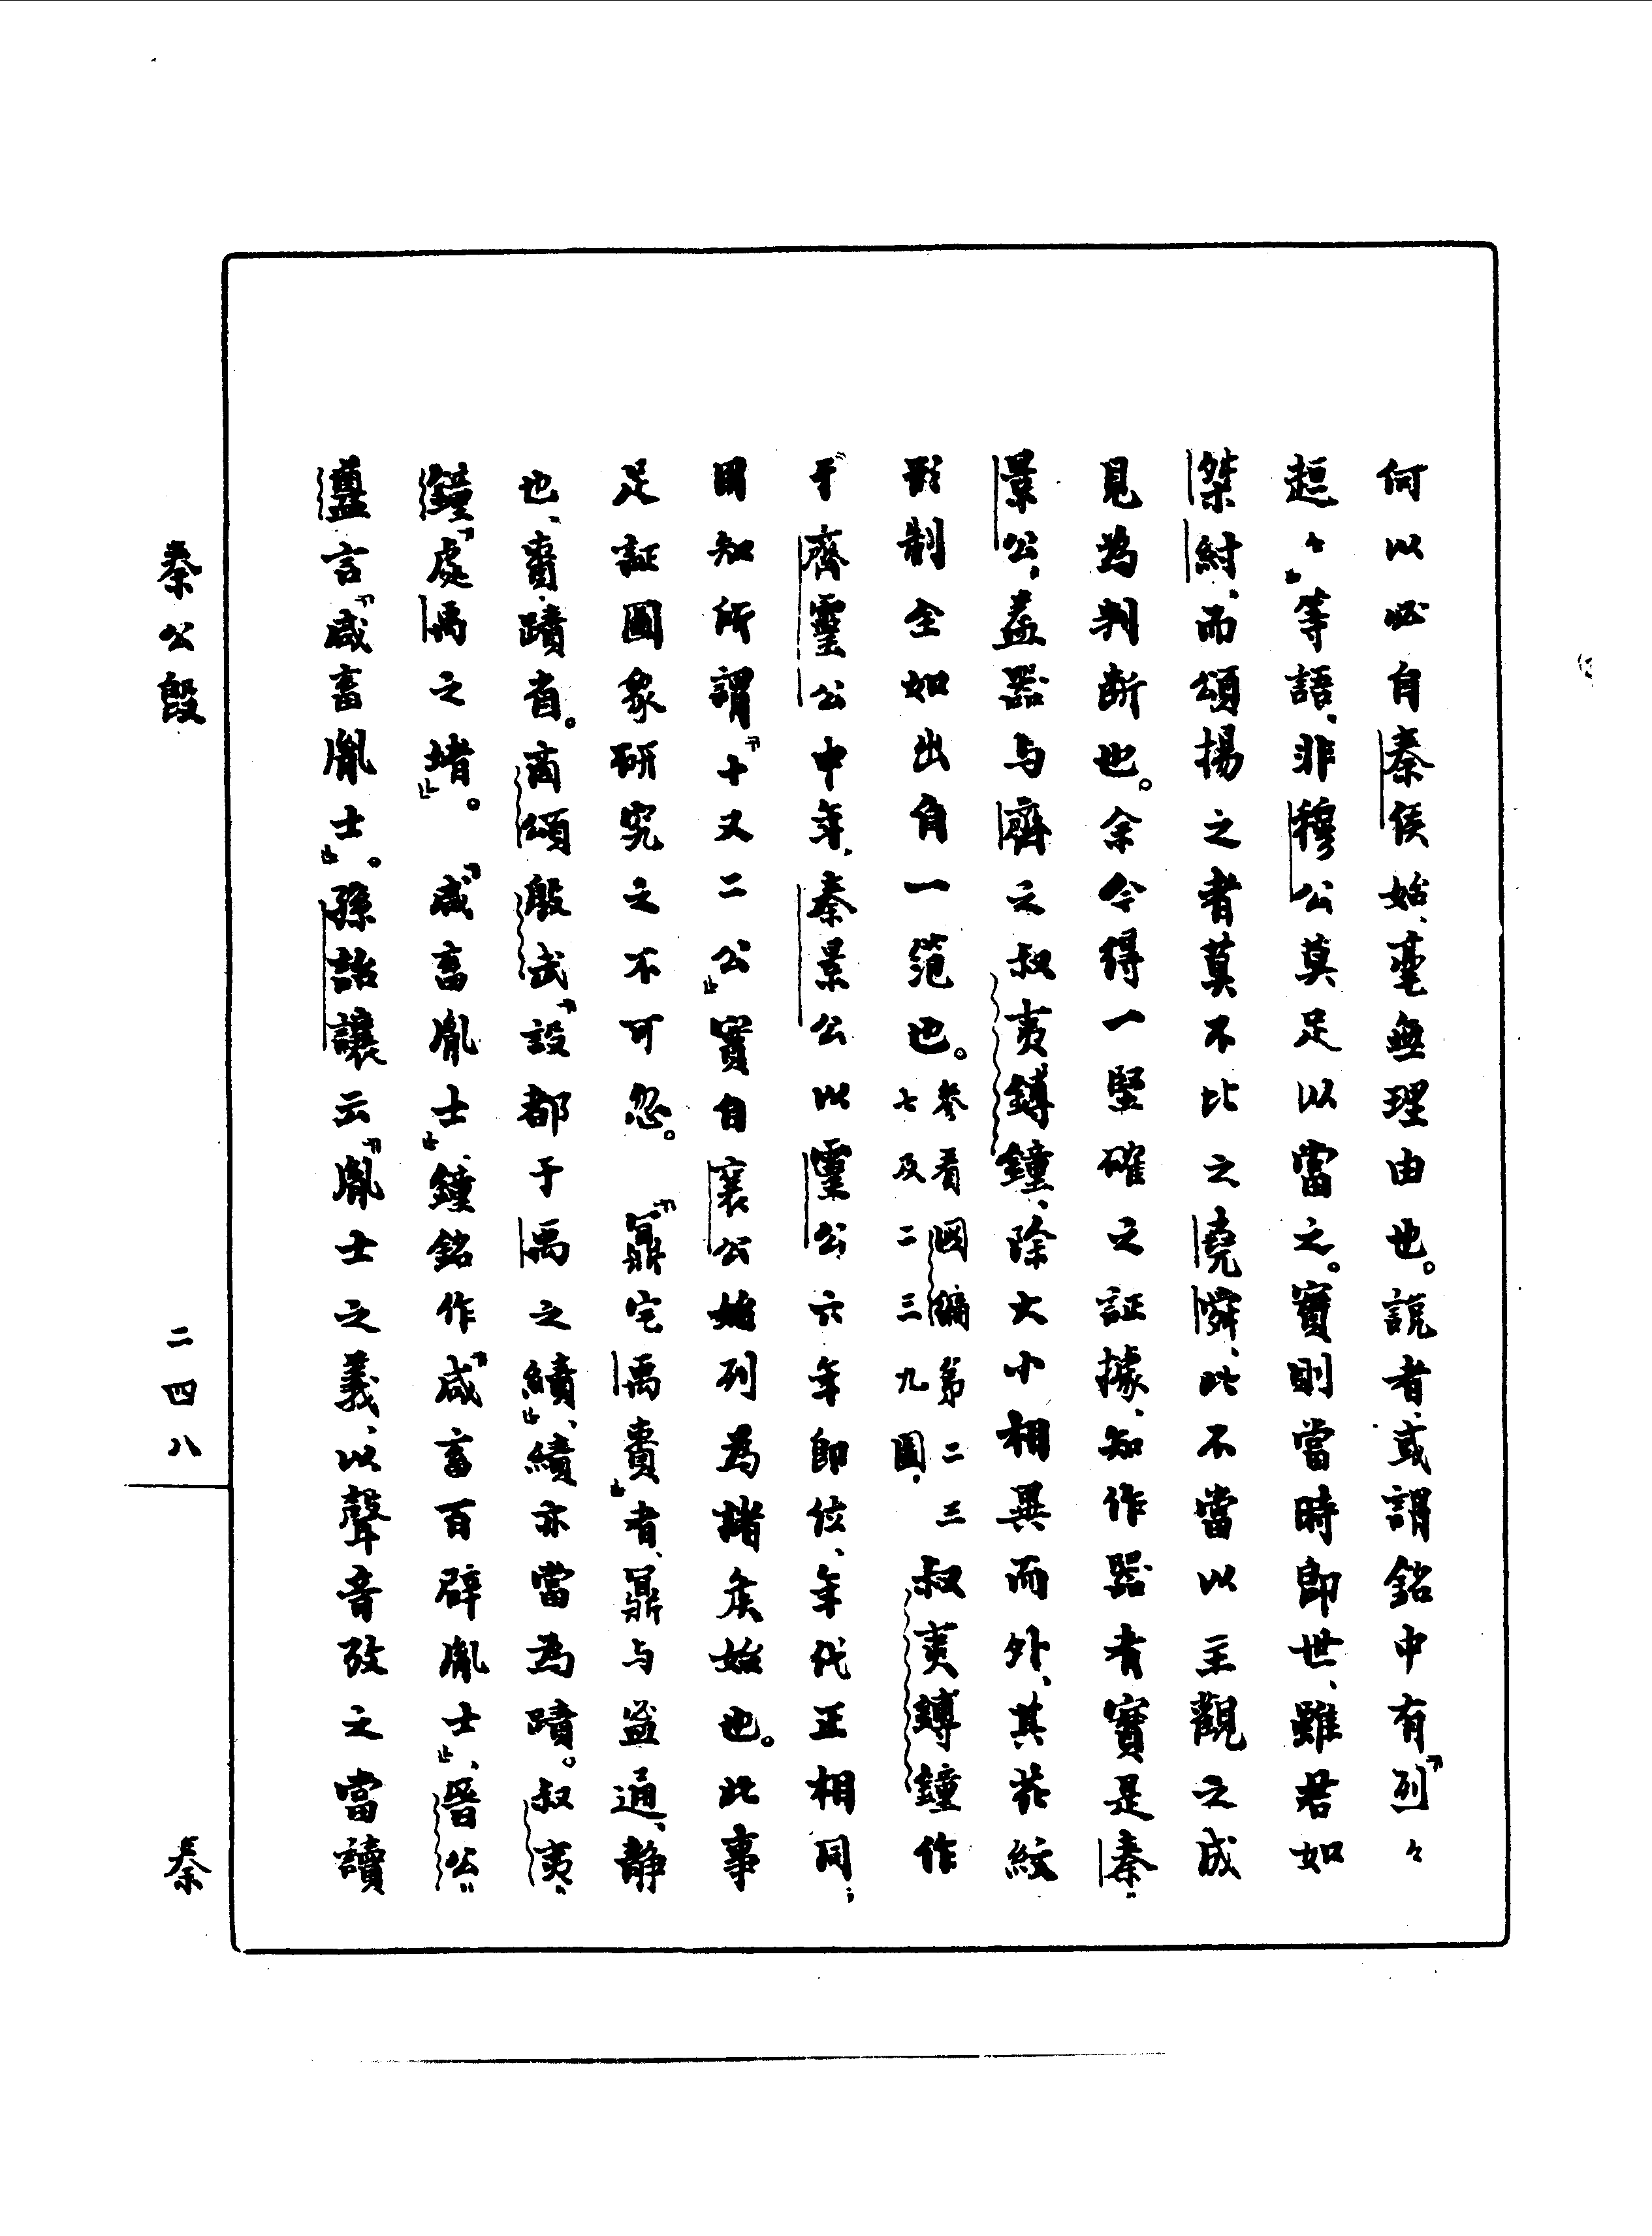 何以必自秦侯始、毫無理由也。說者或謂銘中有『剌々
趄々』等語、非穆公莫足以當之。實則當時郎世、雖君如
桀紂、而頌揚之者莫不比之堯舜、此不當以主觀之成
見為判斷也。余今得一堅確之証據、知作器者實是秦
景公、蓋器与齊之叔夷鎛鐘、除大小相異而外、其花紋
形制全如出自一笵也。參看圖編第二三七及二三九圖、叔夷鎛鐘作
于齊靈公中年、秦景公以靈公六年即位、年代正相同；
因知所謂『十又二公』實自襄公始列為諸矦始也。此事
足証圖象研究之不可忽。『鼏宅禹賷』者、鼏与謐通、静
也、賷、蹟省。商頌殷武『設都于禹之績』、績亦當為蹟。叔夷
鐘『處禹之堵』。『咸畜胤士』、鐘銘作『咸畜百辟胤士』、晉公
𥂴言『咸畜胤士』。孫詒讓云『胤士之義、以聲音攷之當讀
秦公𣪘
二四八
秦